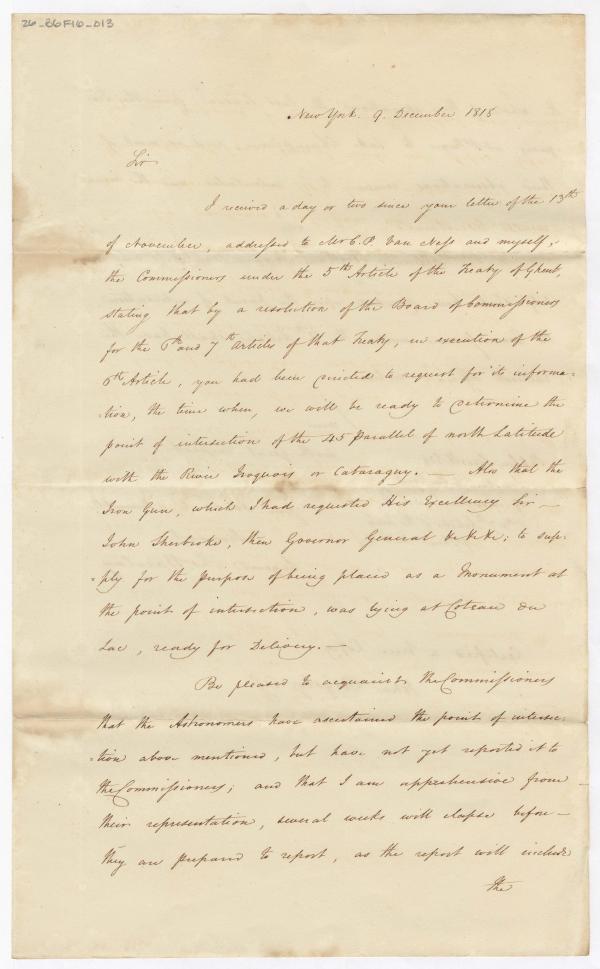 26-B6F16-013
New York. 9. December 1818
Sir
I received a day or two since your letter of the 13th
of November, addressed to Mr C. P. Van Ness and myself,
the Commissioners under the 5th Article of the Treaty of Ghent,
stating that by a resolution of the Board of Commissioners
for the 6th and 7th articles of that Treaty, in execution of the
6th Article, you had been directed to request for its informa-
-tion, the time when, we will be ready to determine the
point of intersection of the 45 Parallel of north Latitude
with the River Iroquois or Cataraquy. — Also that the
Iron Gun, which I had requested His Excellency Sir —
John Sherbroke, then Governor General &c &c &c; to sup-
-ply for the purpose of being placed as a Monument at
the point of intersection, was lying at Coteau du
Lac, ready for Delivery. —
Be pleased to acquaint the Commissioners
that the Astronomers have ascertained the point of intersec-
-tion above mentioned, but have not yet reported it to
the Commissioners; and that I am apprehensive from
their representation, several weeks will elapse before —
they are prepared to report, as the report will include
the